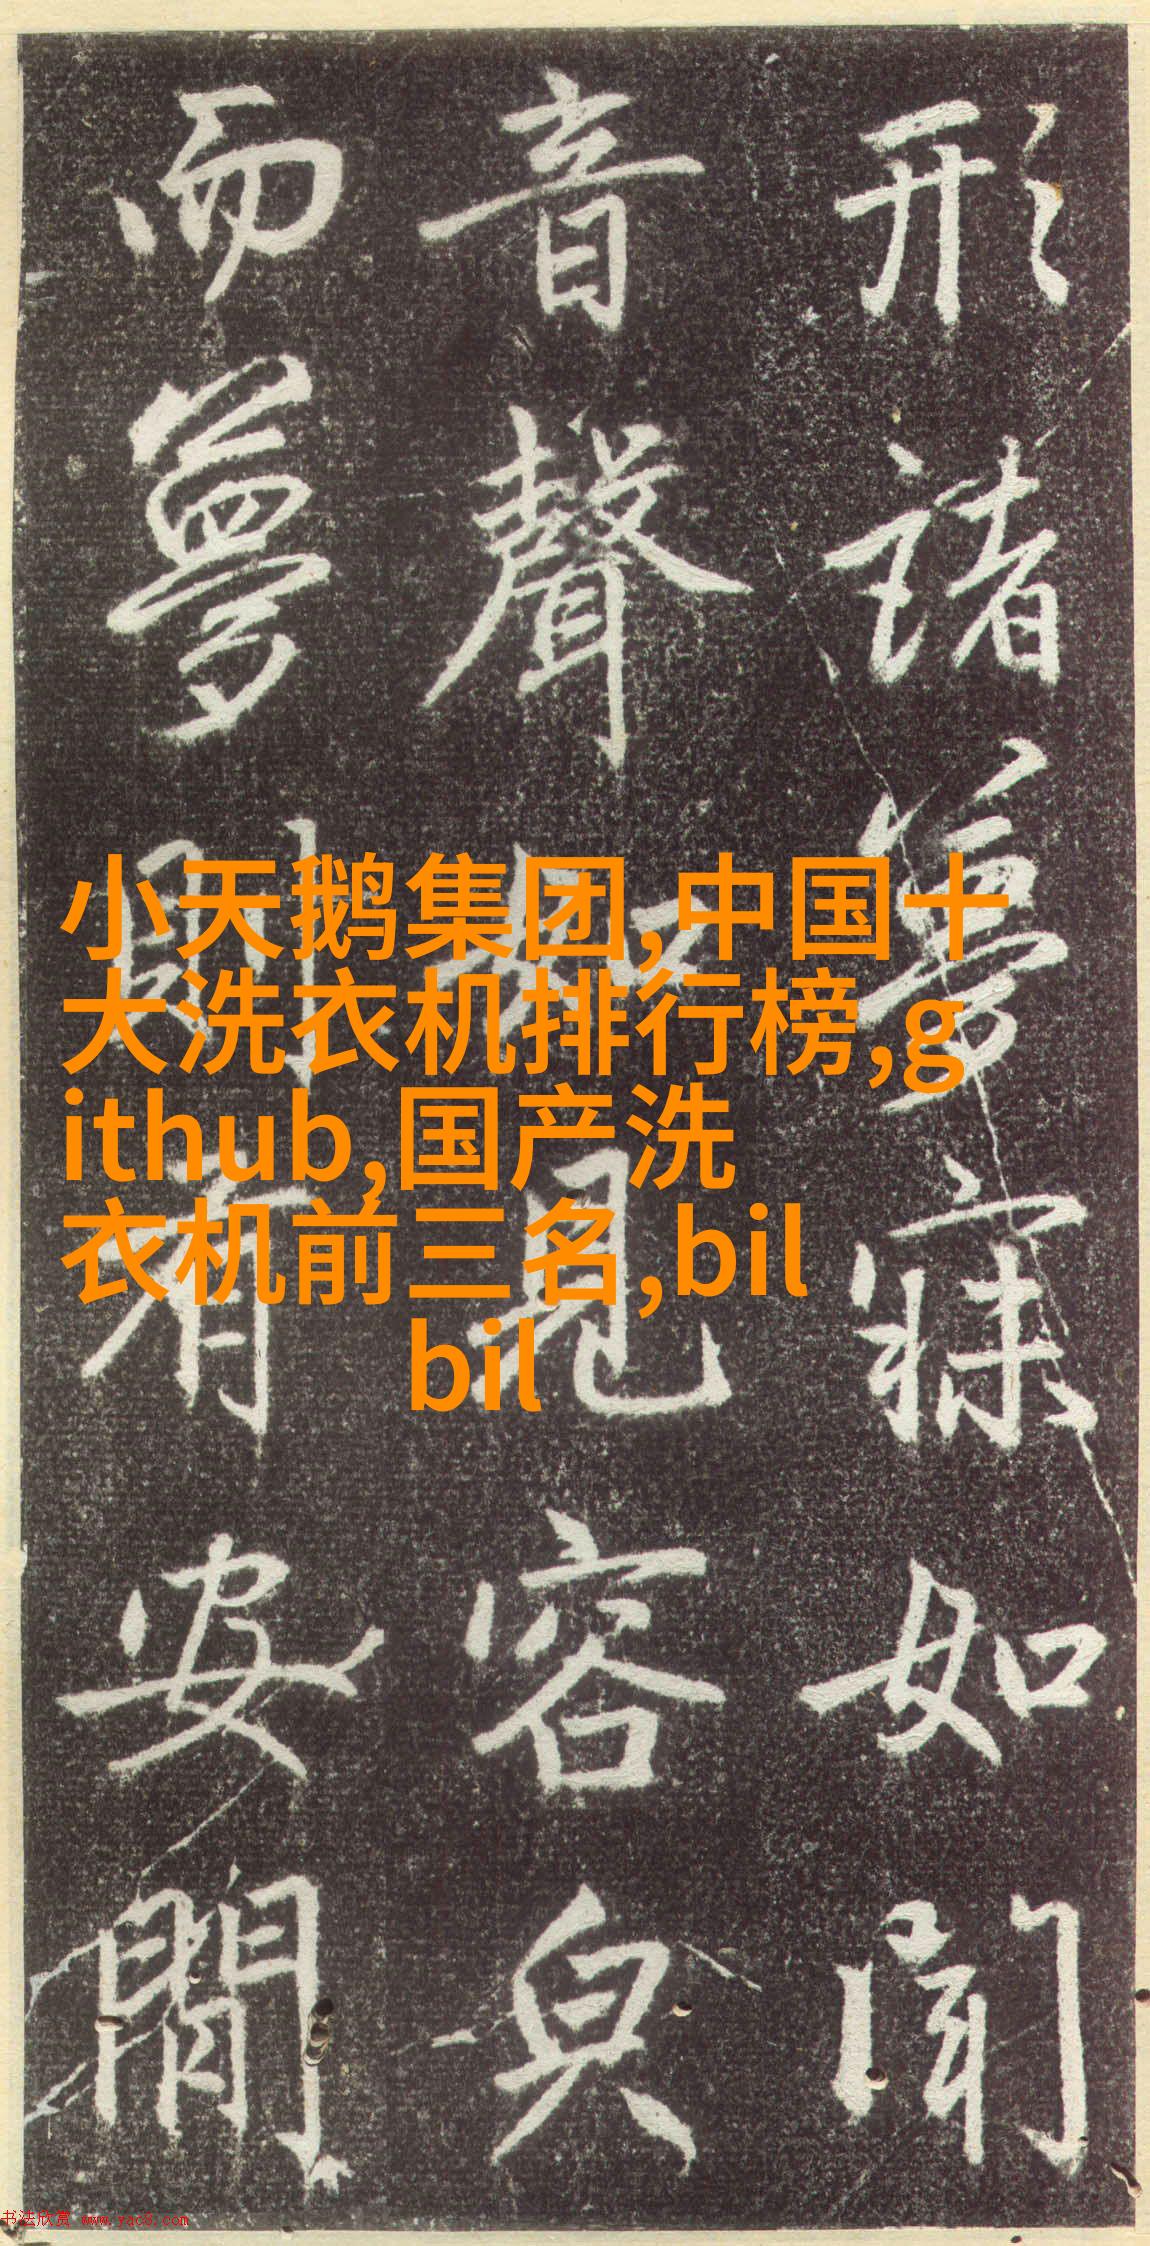 形諸夢寐如聞
音聲如見容皃
而夢則有安閒
小天鹅集团,中国十
大洗衣机排行榜,g
ithub,国产洗
衣机前三名,bil
bil
书法欣赏 www.yac8.com